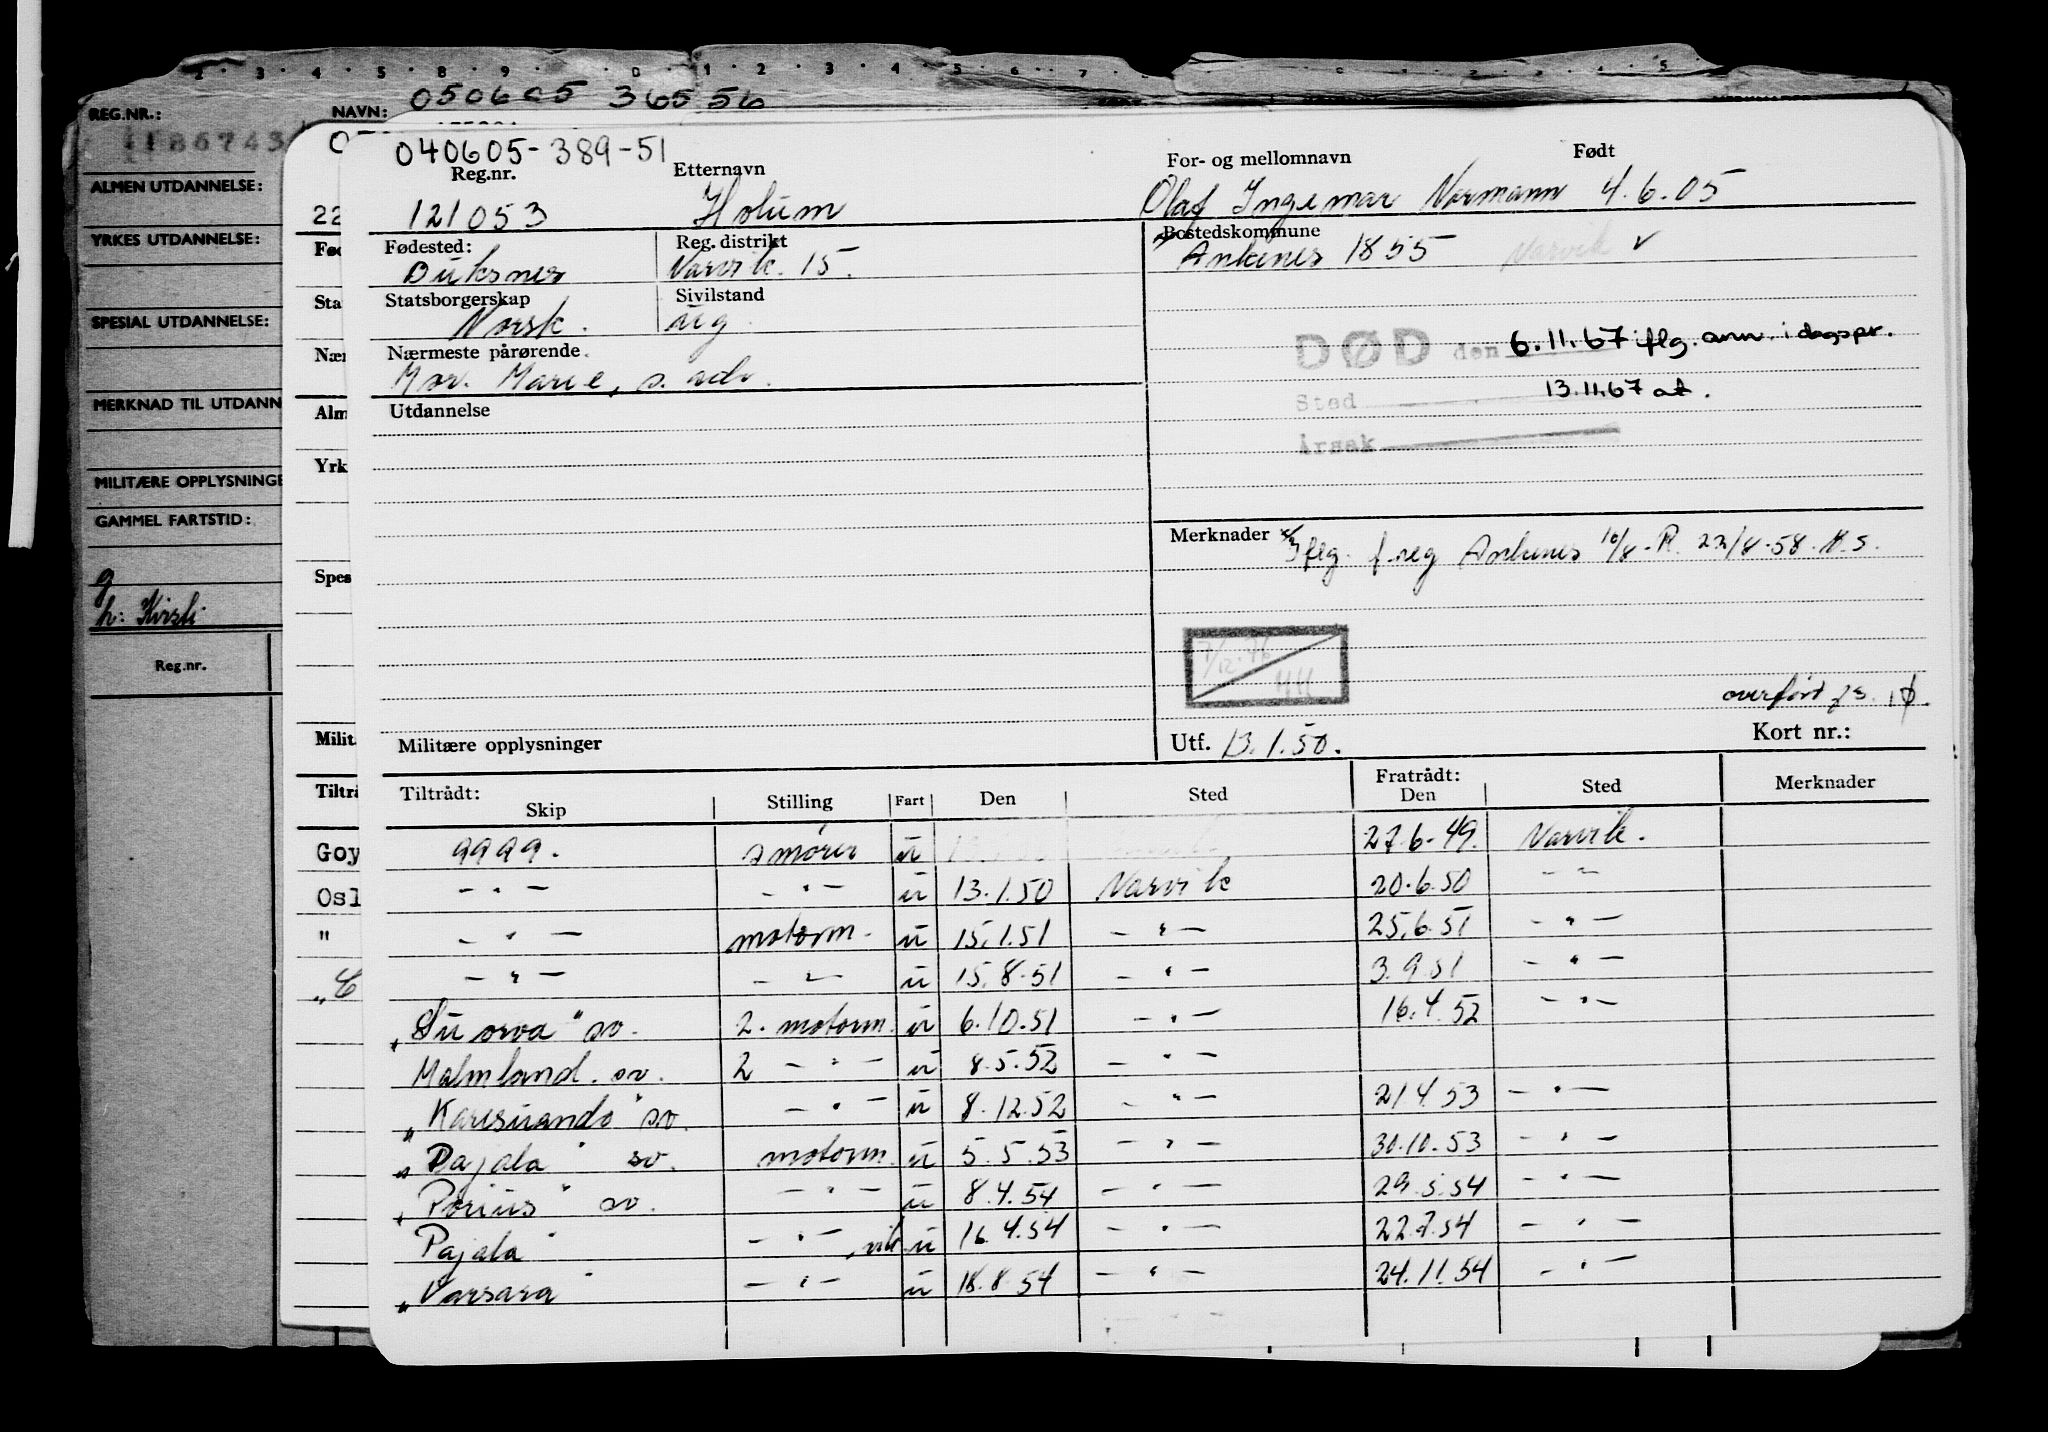 2 3 4 5 8 9 0 1 2 3 4 5 6 7
REG.NR.: NAVN: 050605 36556
ALMEN UTDANNELSE:
YRKES UTDANNELSE:
SPESIAL UTDANNELSE:
MERKNAD TIL UTDANN
MILITÆRE OPPLYSNINGE
GAMMEL FARTSTID:
g
h: Kirsti
Reg.nr.
22
Fød
Sta
Nær
Alm
Yrk
Spes
Milit
Tiltrå
Goy
Osl
"
040605-389-51
Reg.nr. Etternavn For- og mellomnavn Født
121053 Holum Olaf Ingemar Normann 4.6.05
Fødested: Reg. distrikt Bostedskommune
Buksnes Narvik 15. Ankenes 1855 Narvik v
Statsborgerskap Sivilstand
Norsk. ug
DØD den 6.11.67 iflg. ann. i dagspr.
Nærmeste pårørende
Mor. Marie, s. adr.
Sted 13.11.67 at.
Utdannelse
Årsak
Merknader Iflg. f.reg Ankenes 10/8-R. 22/8-58. K.S.
7/12.76
overført fs.
Militære opplysninger Utf. 13.1.50. Kort nr.:
Tiltrådt: Skip Stilling Fart Den Sted Fratrådt: Den Sted Merknader
9999. smører u 27.6.49. Narvik.
-"- -"- u 13.1.50 Narvik 20.6.50 -"-
-"- motorm. u 15.1.51 -"- 25.6.51 -"-
-"- -"- u 15.8.51 -"- 3.9.51 -"-
"Suorva" sv. 2. motorm. u 6.10.51 -"- 16.4.52 -"-
Malmland. sv. 2 -"- u 8.5.52 -"-
"Karesuando" sv. -"- u 8.12.52 -"- 21.4.53 -"-
"Pajala" sv. motorm. u 5.5.53 -"- 30.10.53 -"-
"Porjus" sv. -"- u 8.4.54 -"- 29.5.54 -"-
Pajala" -"- vik. u 16.4.54 -"- 22.7.54 -"-
"Varsara" -"- u 18.8.54 -"- 24.11.54 -"-